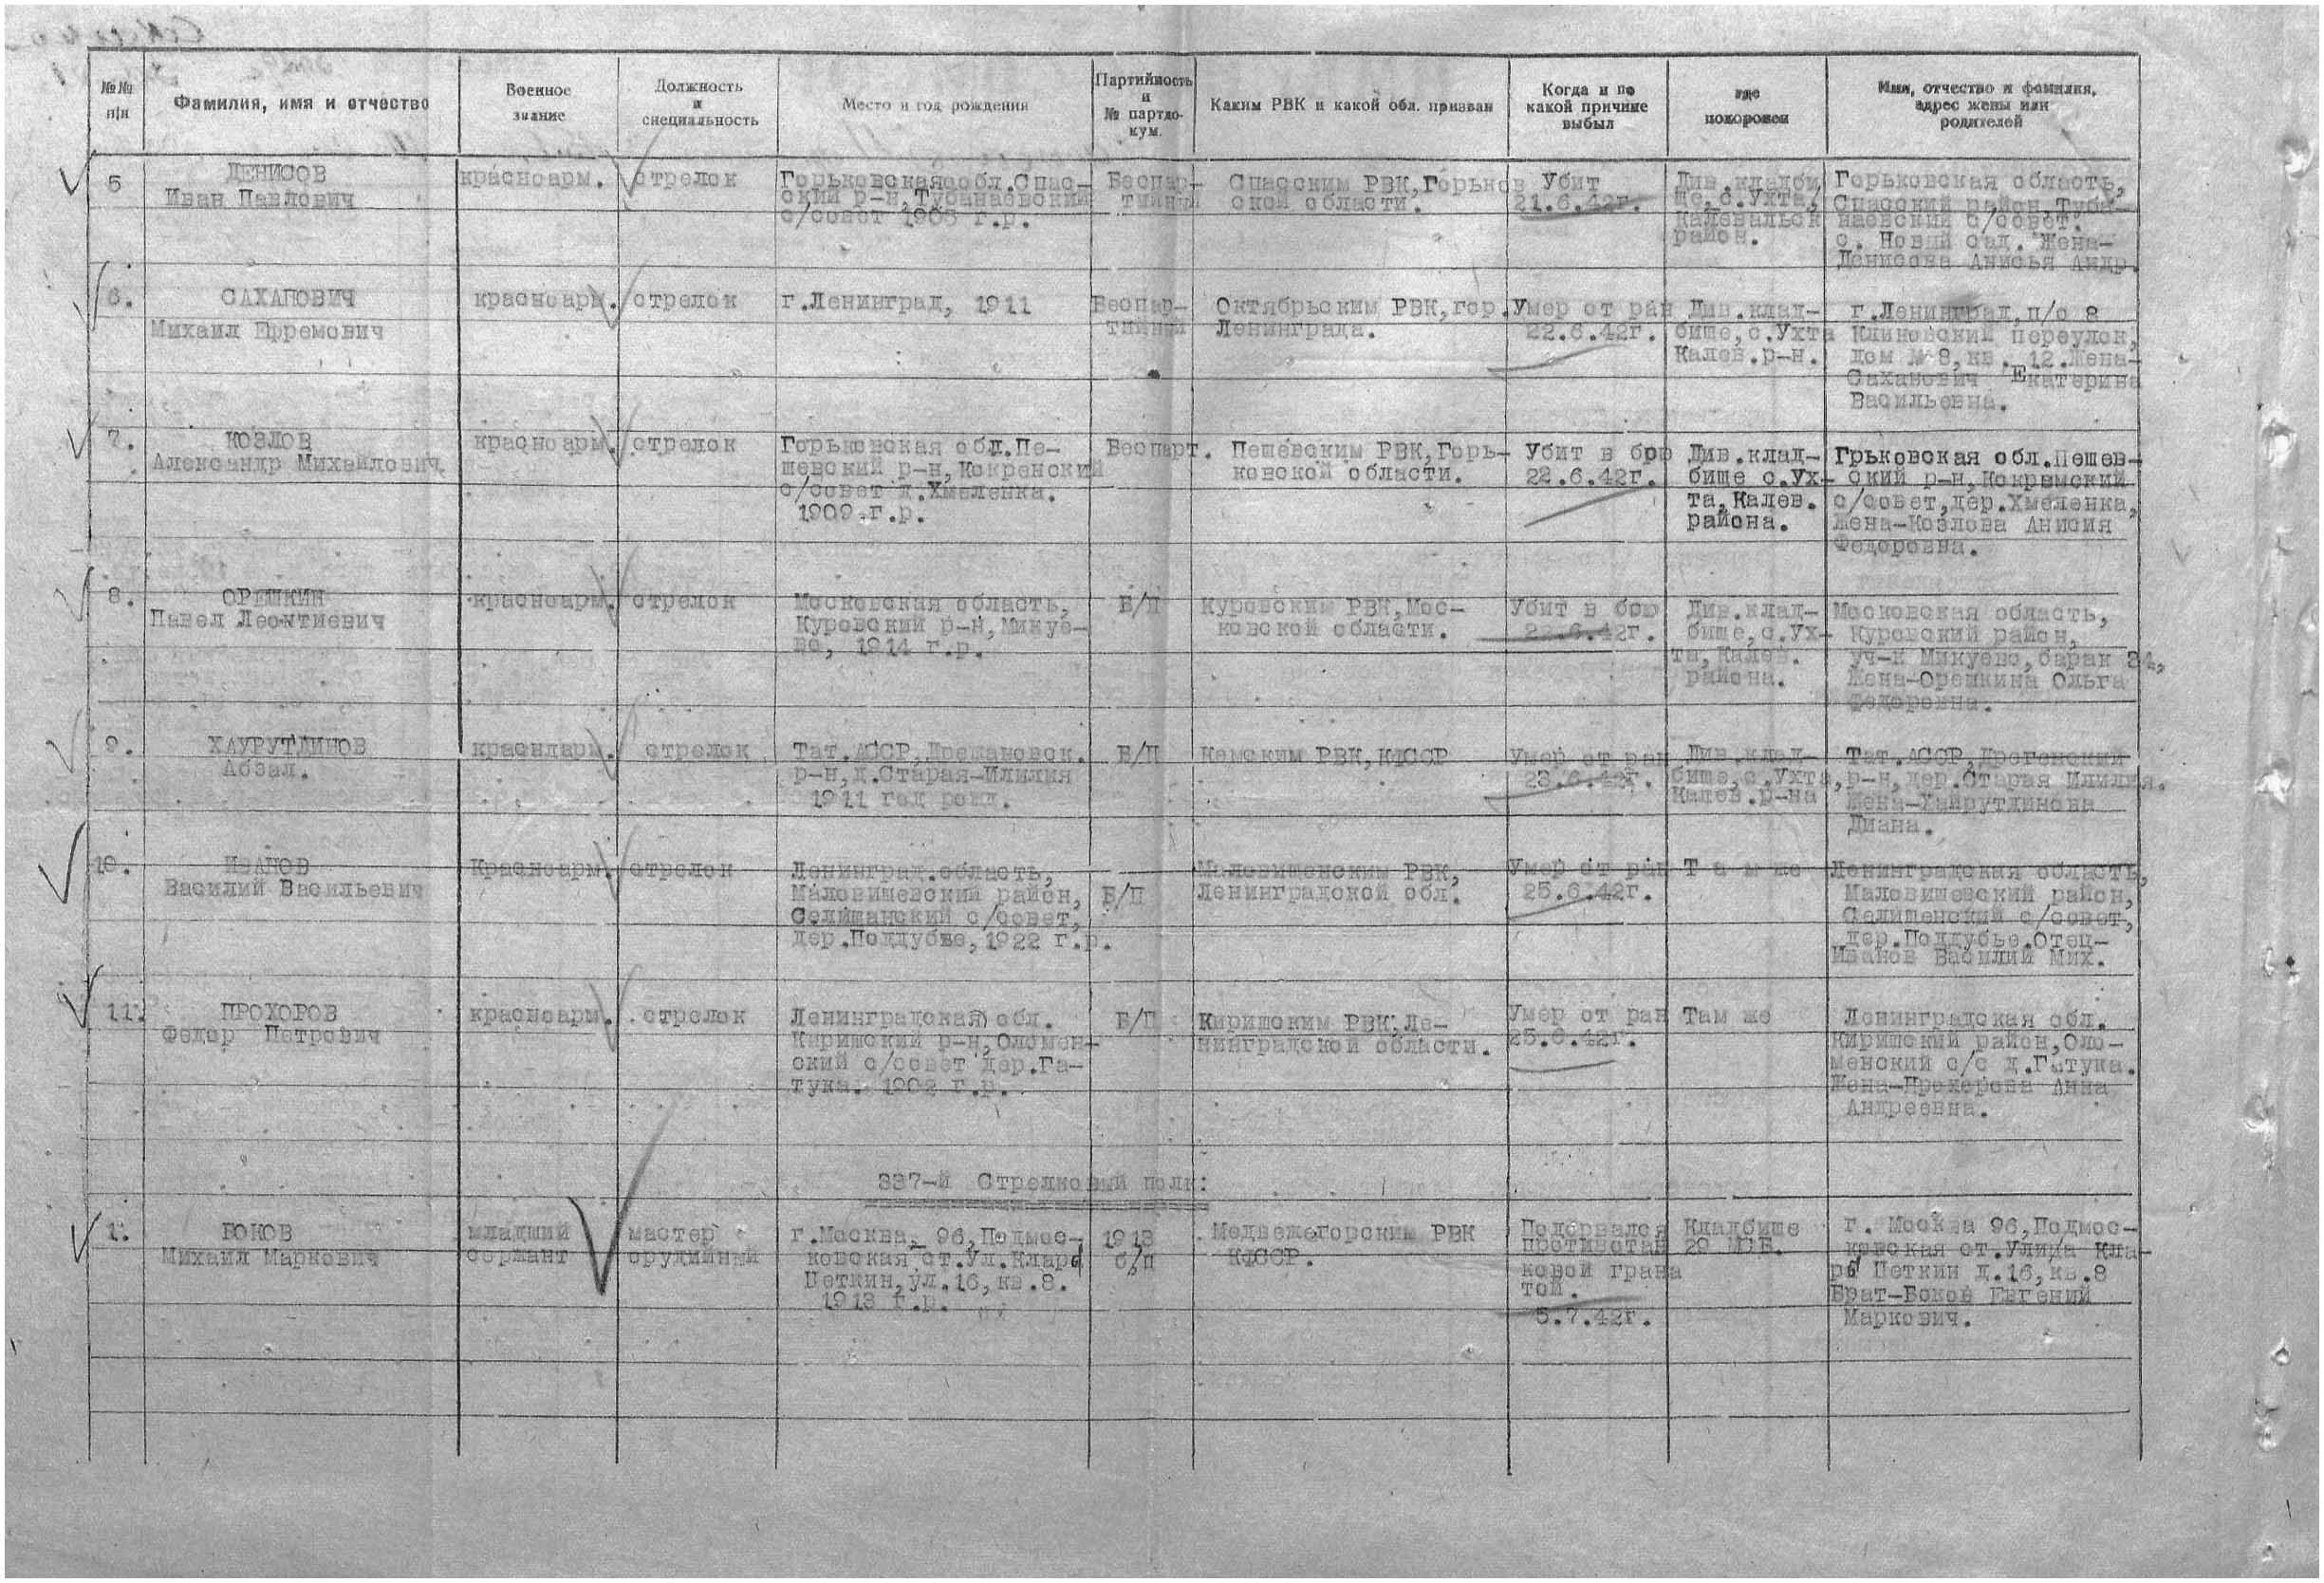 №№ п/п
Фамилия, имя и отчество
Военное звание
Должность и специальность
Место и год рождения
Партийность и № партдо-кум.
Каким РВК и какой обл. призван
Когда и по какой причине выбыл
где похоронен
Имя, отчество и фамилия, адрес жены или родителей
5
ДЕНИСОВ
Иван Павлович
красноарм.
стрелок
Горьковская обл.Спас-
ский р-н, Тубанаевский
с/совет 1905 г.р.
Беспар-
тийный
Спасским РВК, Горьков
ской области.
Убит
21.6.42г.
Див.кладби
ще, с.Ухта,
Калевальск
район.
Горьковская область,
Спасский район, Туба-
наевский с/совет.
с. Новый сад. Жена-
Денисова Анисья Андр.
6.
САХАНОВИЧ
Михаил Ефремович
красноарм.
стрелок
г.Ленинград, 1911
Беспар-
тийный
Октябрьским РВК, гор.
Ленинграда.
Умер от ран
22.6.42г.
Див.клад-
бище, с.Ухта
Калев.р-н.
г.Ленинград, п/о 8
Климовский переулок,
дом № 8, кв. 12. Жена-
Саханович Екатерина
Васильевна.
7.
КОЗЛОВ
Александр Михайлович
красноарм.
стрелок
Горьковская обл.Пе-
шевский р-н, Кокренский
с/совет д.Хмеленка.
1909 г.р.
Беспарт.
Пешевским РВК, Горь-
ковской области.
Убит в бою
22.6.42г.
Див.клад-
бище с.Ух-
та, Калев.
района.
Грьковская обл.Пешев-
ский р-н, Кокремский
с/совет, дер.Хмеленка,
Жена-Козлова Анисия
Федоровна.
8.
ОРЕШКИН
Павел Леонтиевич
красноарм.
стрелок
Московская область,
Куровский р-н, Микуе-
во, 1914 г.р.
Б/П
Куровским РВК, Мос-
ковской области.
Убит в бою
22.6.42г.
Див.клад-
бище, с.Ух-
та, Калев.
района.
Московская область,
Куровский район,
уч-к Микуево, барак 34,
Жена-Орешкина Ольга
Федоровна.
9.
ХАУРУТДИНОВ
Абзал.
красноарм.
стрелок
Тат.АССР, Дрешановск.
р-н, д.Старая-Илилия
1911 год рожд.
Б/П
Кемским РВК, КФССР
Умер от ран
23.6.42г.
Див.клад-
бище, с.Ухта,
Калев.р-на
Тат.АССР,
р-н, дер.Старая Илилия.
Жена-Хайрутдинова
Диана.
10.
ИВАНОВ
Василий Васильевич
Красноарм.
стрелок
Ленинград.область,
Маловишевский район,
Селищанский с/совет,
дер.Поддубье, 1922 г.р.
Б/П
Маловишенским РВК,
Ленинградской обл.
Умер от ран
25.6.42г.
Т а м же
Ленинградская область,
Маловишевский район,
Селищенский с/совет,
дер.Поддубье.Отец-
Иванов Василий Мих.
11.
ПРОХОРОВ
Федор Петрович
красноарм.
стрелок
Ленинградская обл.
Киришский р-н, Оломен-
ский с/совет дер.Га-
тука. 1902 г.р.
Б/П
Киришским РВК, Ле-
нинградской области.
Умер от ран
25.6.42г.
Там же
Ленинградская обл.
Киришский район, Оло-
менский с/с д.Гатука.
Жена-Прохорова Анна
Андреевна.
337-й Стрелковый полк:
1.
БОКОВ
Михаил Маркович
младший
сержант
мастер
орудийный
г.Москва, 96, Подмос-
ковская ст.Ул.Клары
Цеткин, ул.16, кв.8.
1913 г.р.
1913
б/п
Медвежегорским РВК
КФССР.
Подорвался
противотан
ковой грана
той.
5.7.42г.
Кладбище
29 МСБ.
г. Москва 96, Подмос-
ковская ст.Улица Кла-
ры Цеткин д.16, кв.8
Брат-Боков Евгений
Маркович.